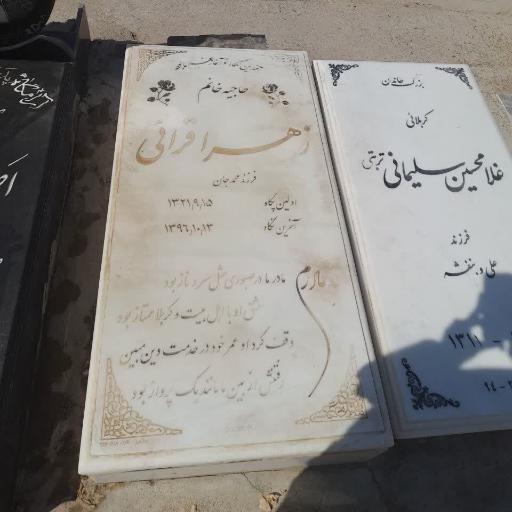 حاجیه خانم
زهرا قرائی
فرزند محمدجان
اولین پگاه ۱۳۲۱،۹،۱۵
آخرین نگاه ۱۳۹۶،۱۰،۱۳
مادرم
مادر ما در صبوری مثل سرو ناز بود
عشق او با اهل بیت و کربلا ممتاز بود
وقف کرد او عمر خود در خدمت دین مبین
رفتنش از بین ما مانند یک پرواز بود
بزرگ خاندان
کربلائی
غلامحسین سلیمانی تربتی
فرزند
علی و بنفشه
۱۳۱۱ -